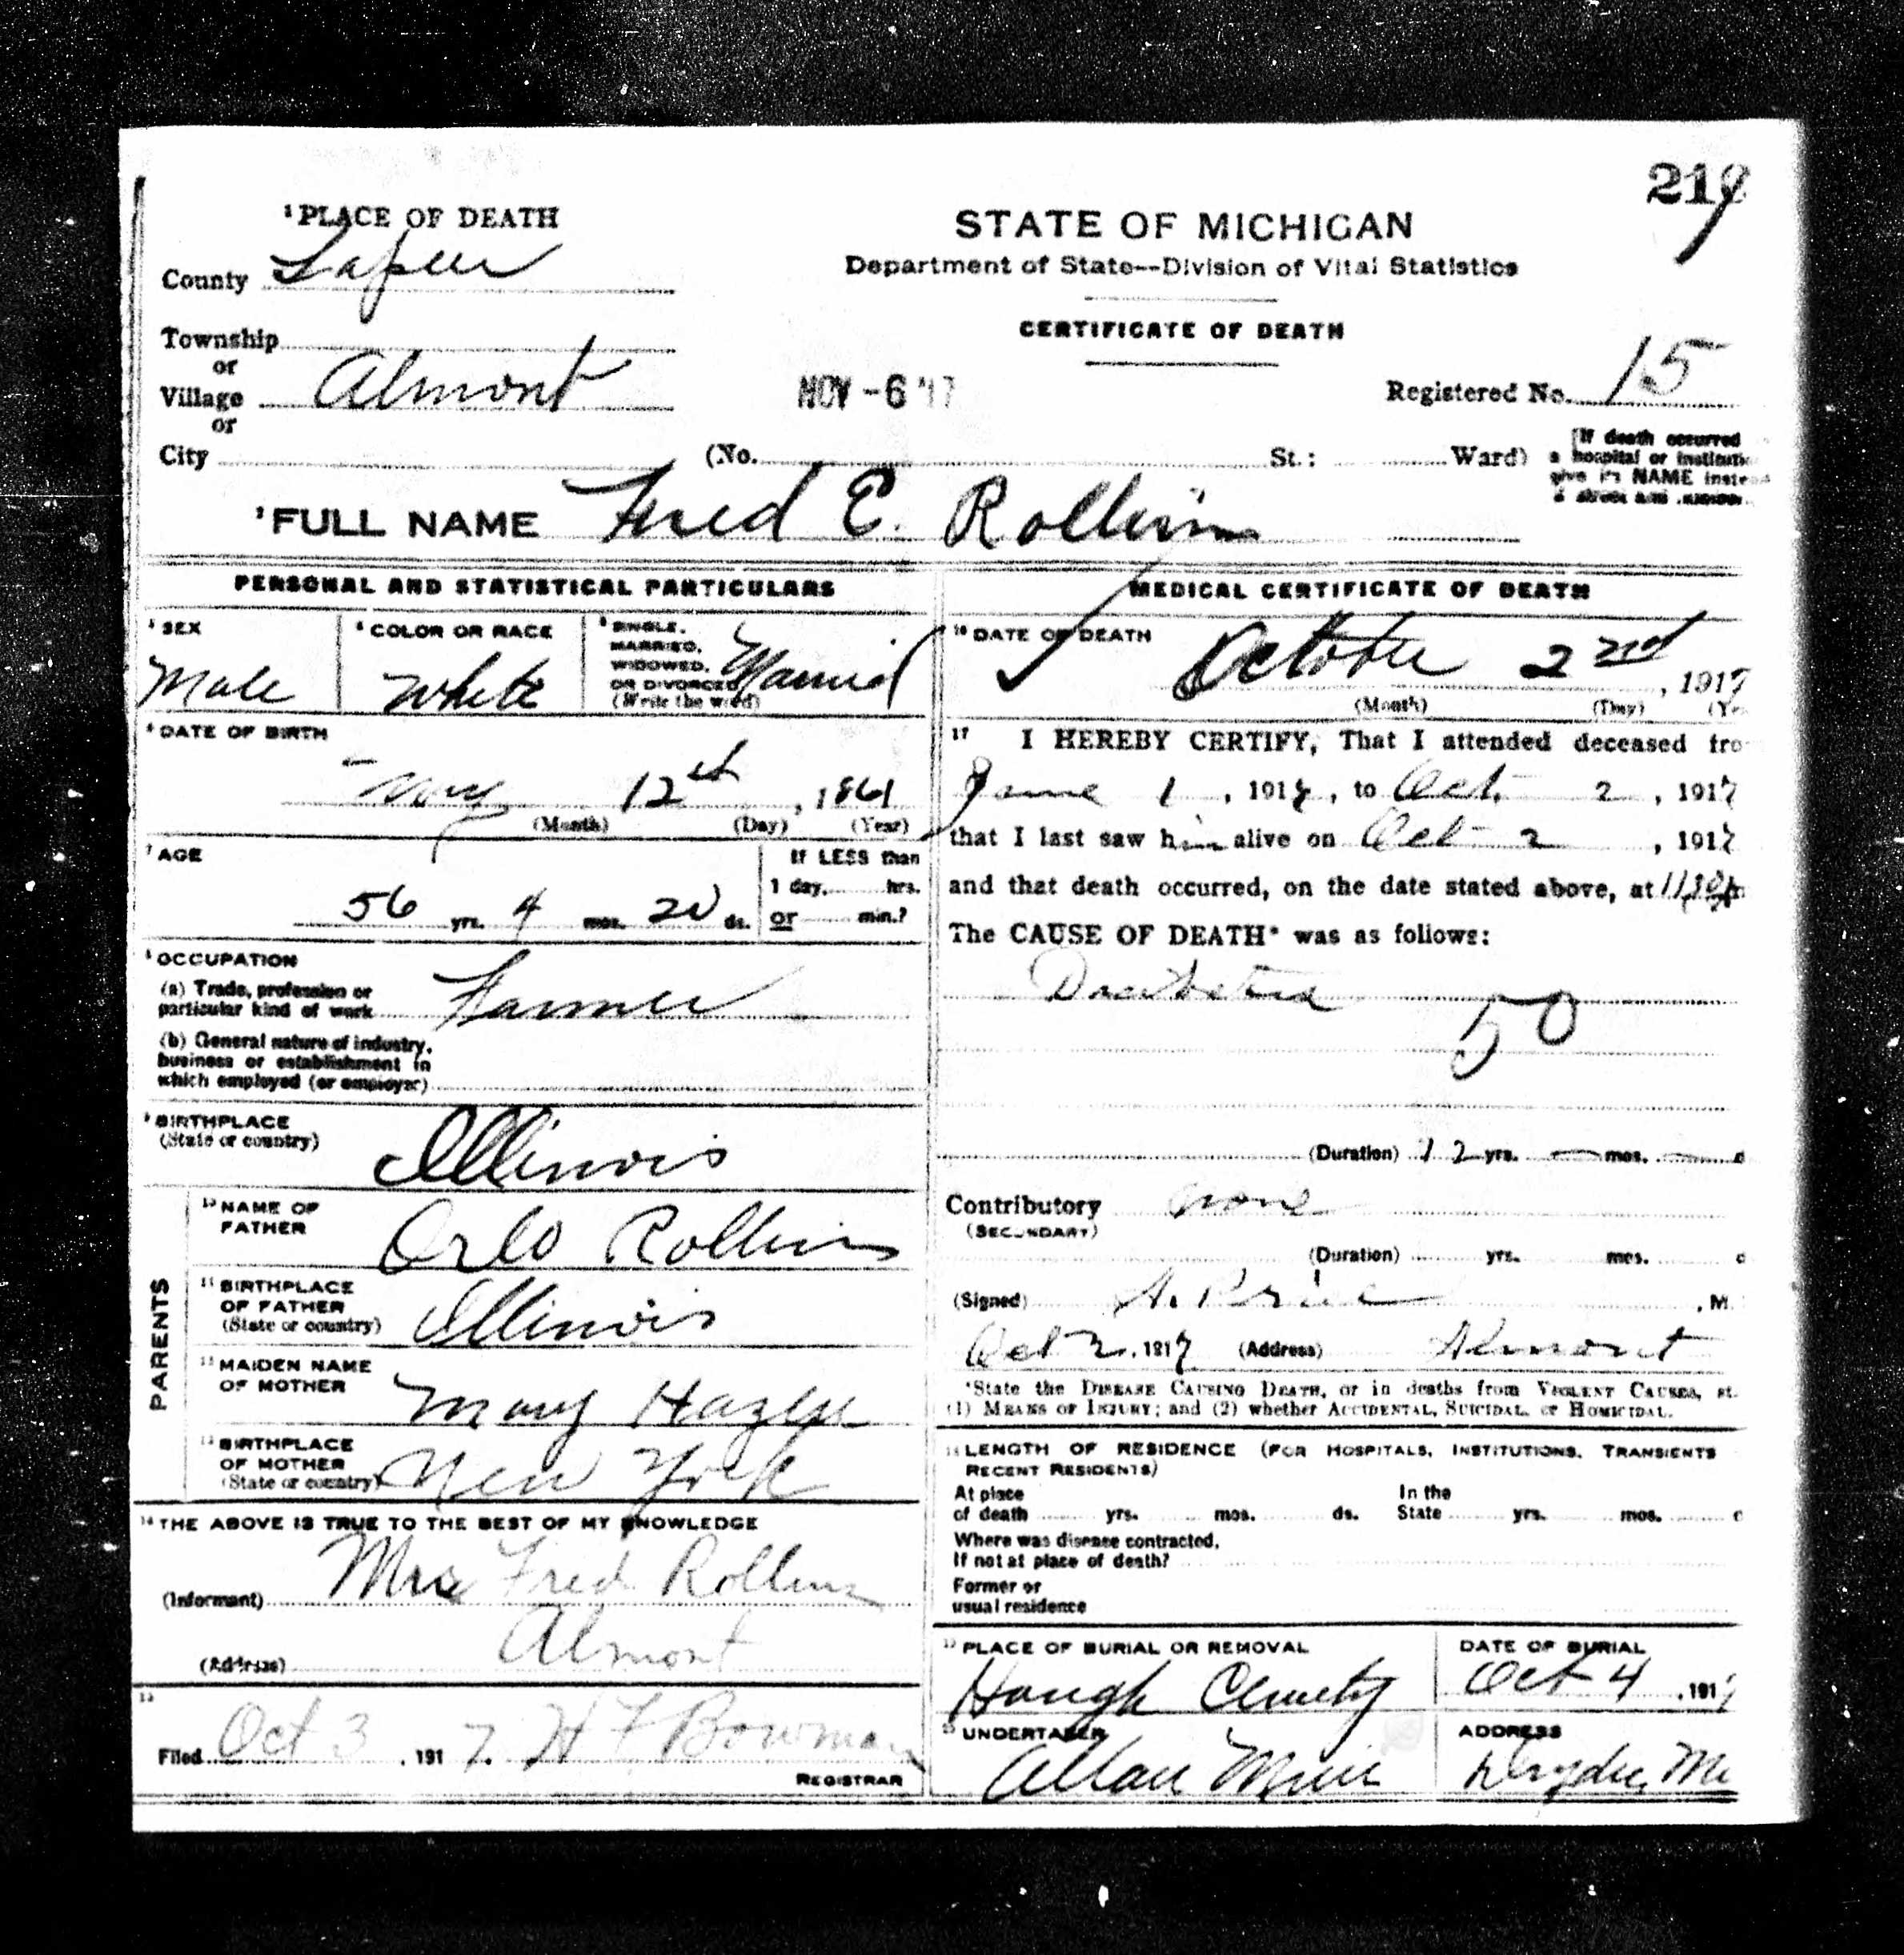 219
¹PLACE OF DEATH
County Lapeer
STATE OF MICHIGAN
Department of State--Division of Vital Statistics
CERTIFICATE OF DEATH
Township
or
Village Almont
or
City
NOV -6 '17
Registered No. 15
(No. St.: Ward)
[If death occurred
a hospital or institution
give its NAME instead
street and number.
²FULL NAME Fred E. Rollins
PERSONAL AND STATISTICAL PARTICULARS
³ SEX
Male
⁴ COLOR OR RACE
White
⁵ SINGLE,
MARRIED,
WIDOWED,
OR DIVORCED
(Write the word)
Married
⁶ DATE OF BIRTH
May 12th, 1861
(Month) (Day) (Year)
⁷ AGE
56 yrs. 4 mos. 20 ds.
If LESS than
1 day, hrs.
or min.?
⁸ OCCUPATION
(a) Trade, profession or
particular kind of work Farmer
(b) General nature of industry,
business or establishment in
which employed (or employer)
⁹ BIRTHPLACE
(State or country)
Illinois
PARENTS
¹⁰ NAME OF
FATHER
Orlo Rollins
¹¹ BIRTHPLACE
OF FATHER
(State or country)
Illinois
¹² MAIDEN NAME
OF MOTHER
Mary Hazen
¹³ BIRTHPLACE
OF MOTHER
(State or country)
New York
¹⁴ THE ABOVE IS TRUE TO THE BEST OF MY KNOWLEDGE
(Informant) Mrs Fred Rollins
(Address) Almont
¹⁵
Filed Oct 3, 1917. H F Bowman
REGISTRAR
MEDICAL CERTIFICATE OF DEATH
¹⁶ DATE OF DEATH
October 2nd, 1917
(Month) (Day) (Ye
¹⁷ I HEREBY CERTIFY, That I attended deceased fro
June 1, 1917, to Oct. 2, 1917
that I last saw him alive on Oct 2, 1917
and that death occurred, on the date stated above, at
The CAUSE OF DEATH* was as follows:
Diabetes
50
(Duration) 12 yrs. — mos. — d
Contributory none
(SECONDARY)
(Duration) yrs. mos. d
(Signed) A. Price, M.
Oct 2, 1917 (Address) Almont
*State the DISEASE CAUSING DEATH, or in deaths from VIOLENT CAUSES, st.
(1) MEANS OF INJURY; and (2) whether ACCIDENTAL, SUICIDAL, or HOMICIDAL.
¹⁸ LENGTH OF RESIDENCE (FOR HOSPITALS, INSTITUTIONS, TRANSIENTS
RECENT RESIDENTS)
At place
of death yrs. mos. ds.
In the
State yrs. mos. d
Where was disease contracted,
If not at place of death?
Former or
usual residence
¹⁹ PLACE OF BURIAL OR REMOVAL
Hough Cemetery
DATE OF BURIAL
Oct 4, 1917
²⁰ UNDERTAKER
Allan Muir
ADDRESS
Dryden, Mi